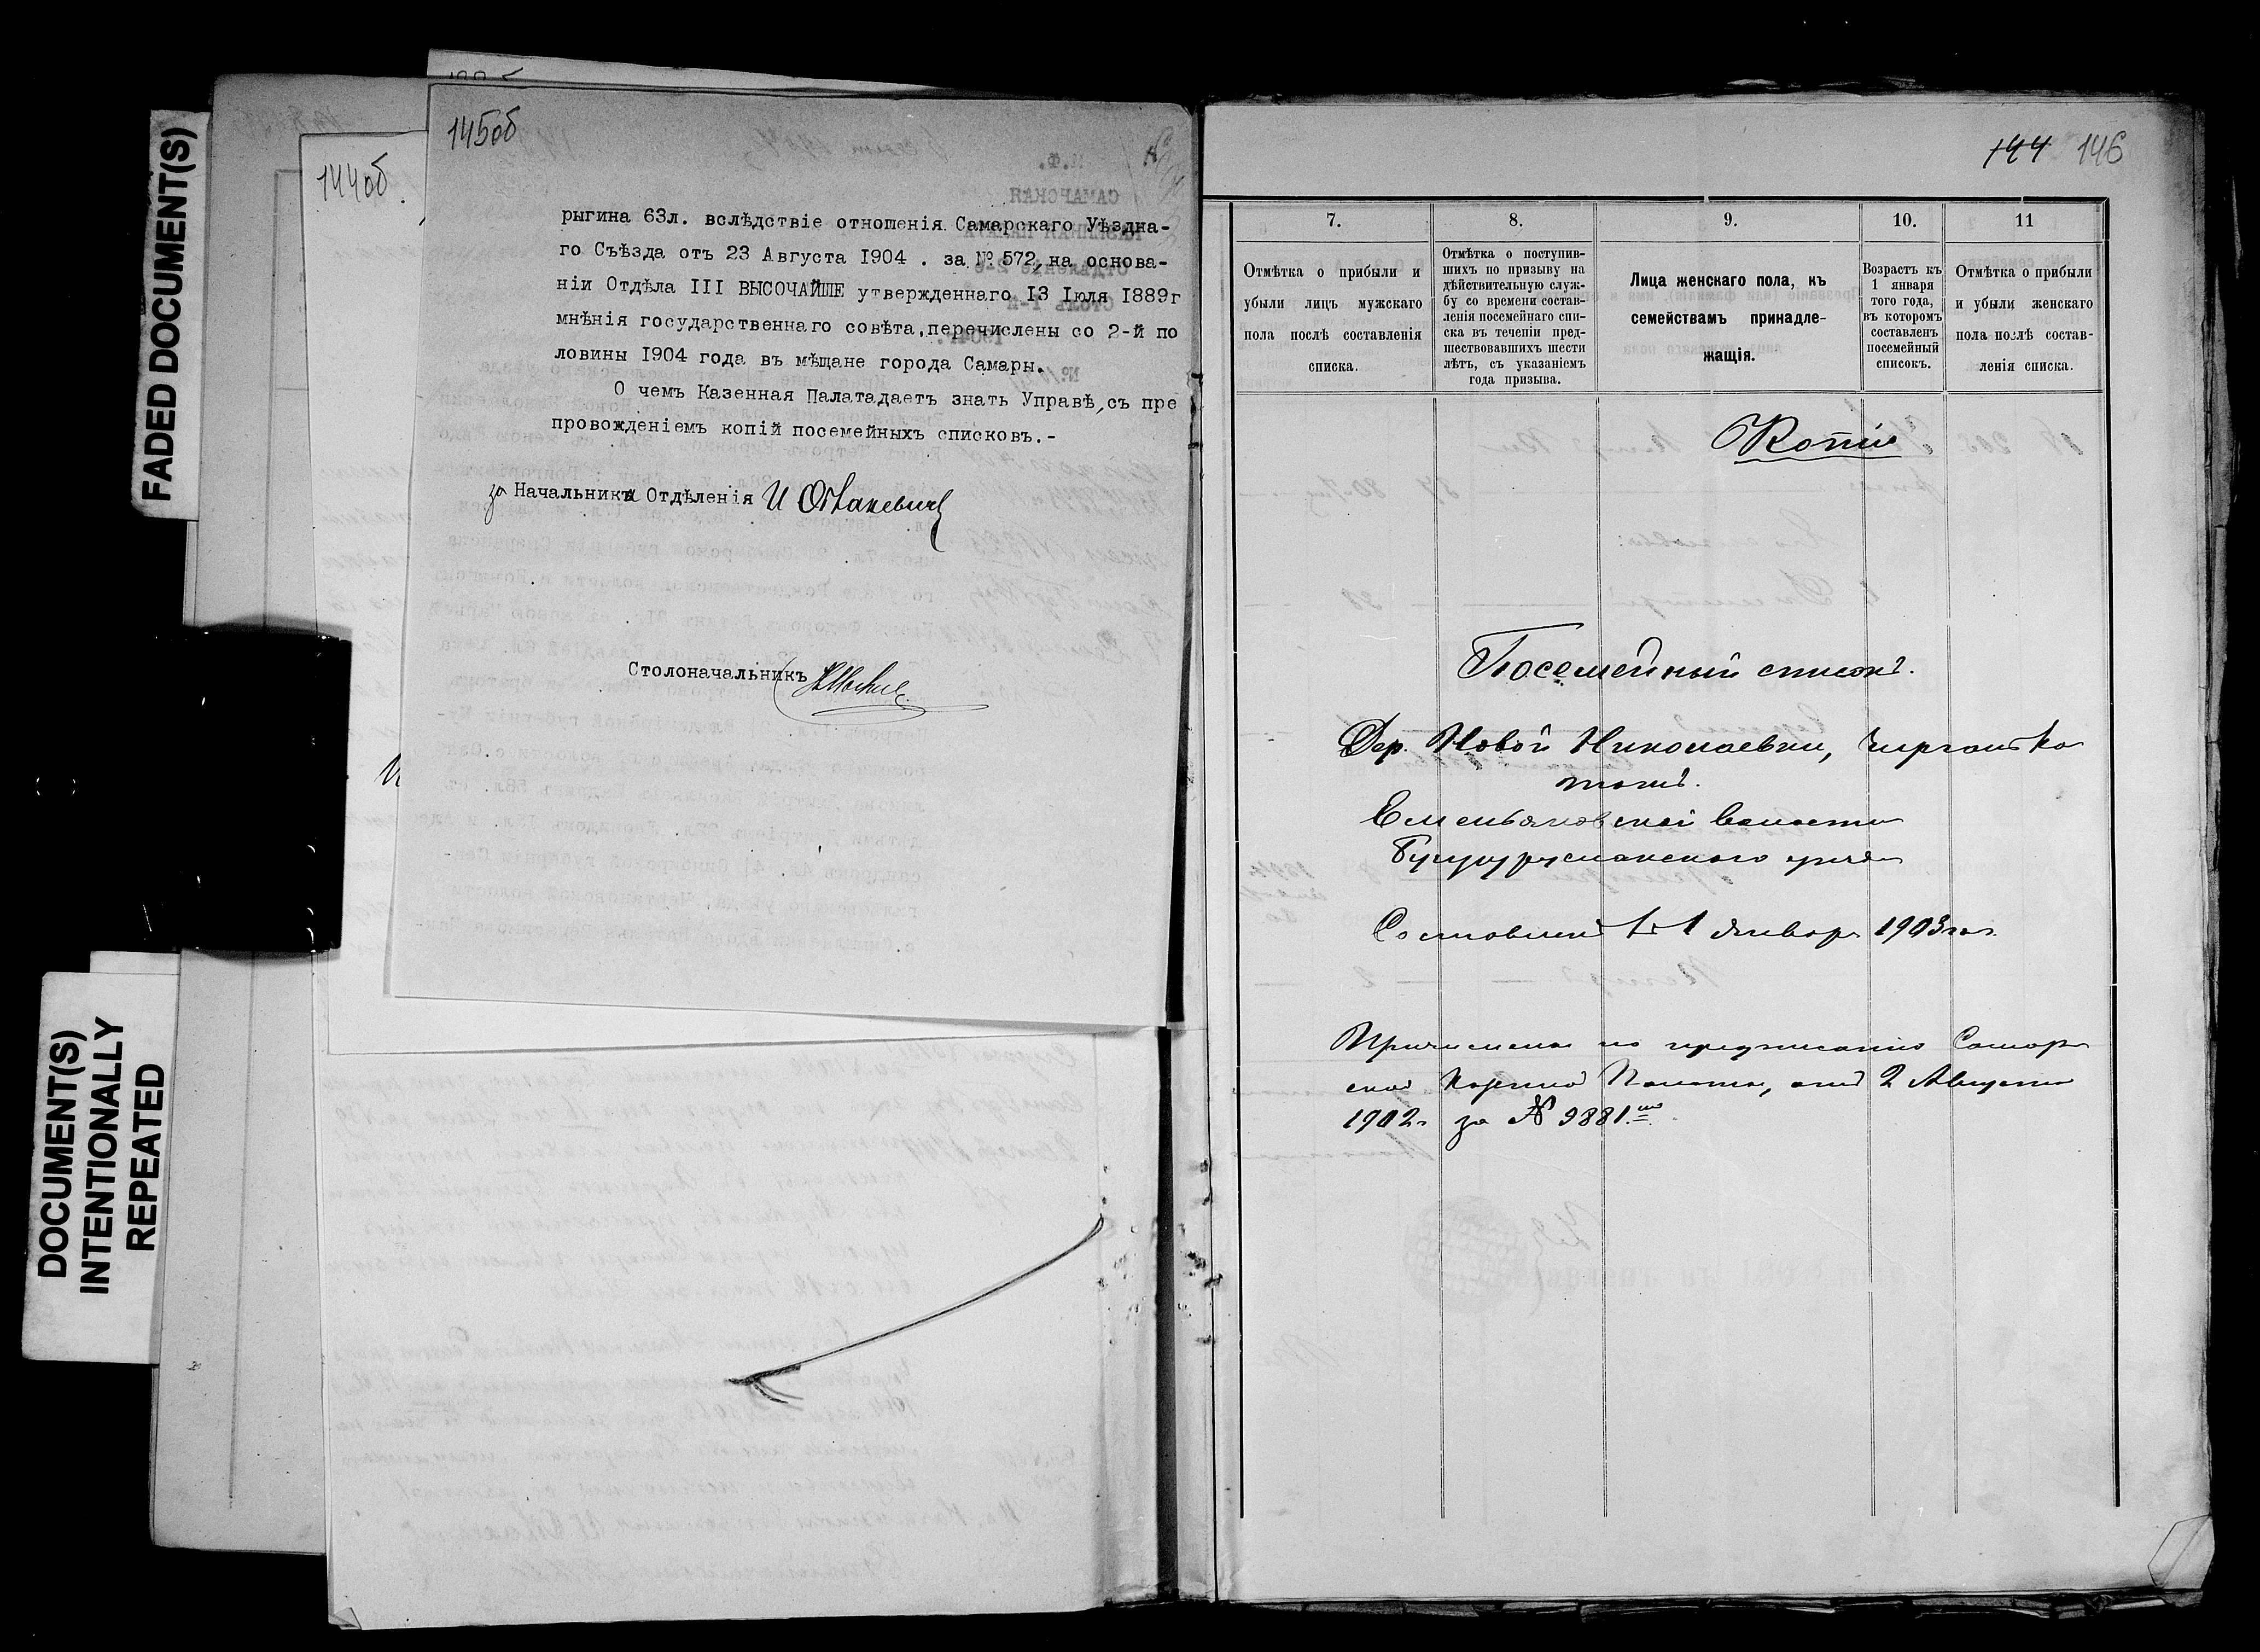 FADED DOCUMENT(S)
DOCUMENT(S)
INTENTIONALLY
REPEATED
144об.
145об
рыгина 63л. вслѣдствіе отношенія Самарскаго Уѣздна-
го Съѣзда отъ 23 Августа 1904 . за № 572, на основа-
ніи Отдѣла III ВЫСОЧАЙШЕ утвержденнаго 13 Іюля 1889г
мнѣнія государственнаго совѣта,перечислены со 2-й по
ловины 1904 года въ мѣщане города Самары.
О чемъ Казенная Палатадаетъ знать Управѣ, съ пре
провожденіемъ копій посемейныхъ списковъ.-
за Начальника Отдѣленія И
Столоначальникъ
144 146
7.
8.
9.
10.
11
Отмѣтка о прибыли и
убыли лицъ мужскаго
пола послѣ составленія
списка.
Отмѣтка о поступив-
шихъ по призыву на
дѣйствительную служ-
бу со времени состав-
ленія посемейнаго спи-
ска въ теченіи пред-
шествовавшихъ шести
лѣтъ, съ указаніемъ
года призыва.
Лица женскаго пола, къ
семействамъ принадле-
жащія.
Возрастъ къ
1 января
того года,
въ которомъ
составленъ
посемейный
списокъ.
Отмѣтка о прибыли
и убыли женскаго
пола послѣ состав-
ленія списка.
Копія
Посемейный списокъ.
Дер. Новой Николаевки,
тожъ.
Емельяновской волости
Бугурусланского уезда
Составленъ къ 1 Января 1903 года
Причислена по предписанію Самар
ской Казенной Палаты, отъ 2 Августа
1902г за № 9881.